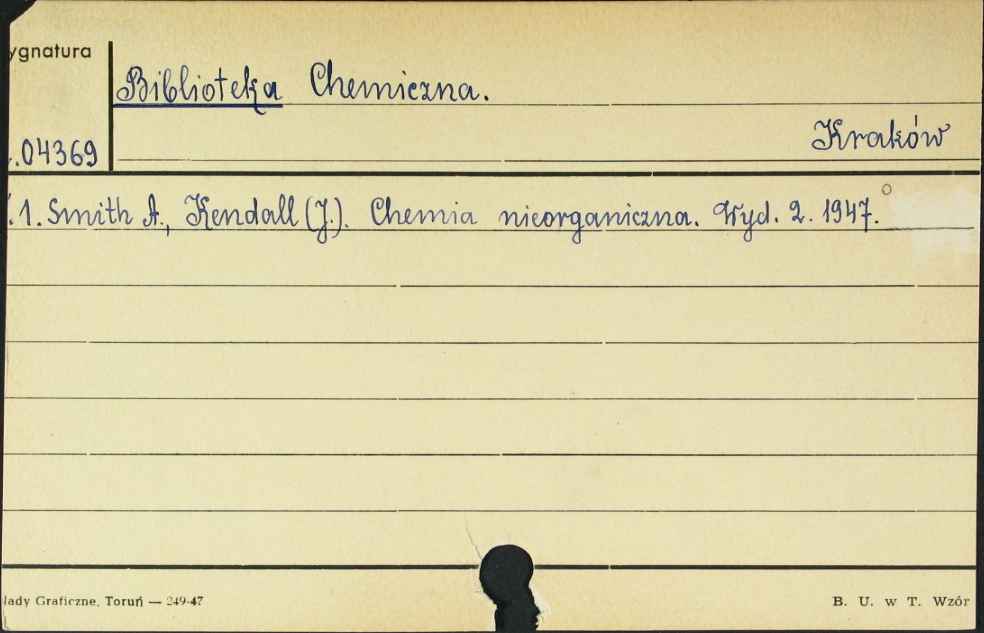 ygnatura
Biblioteka Chemiczna.
Kraków
.04369
.1. Smith A., Kendall (J.). Chemia nieorganiczna. Wyd. 2. 1947.
lady Graficzne, Toruń — 249-47
B. U. w T. Wzór